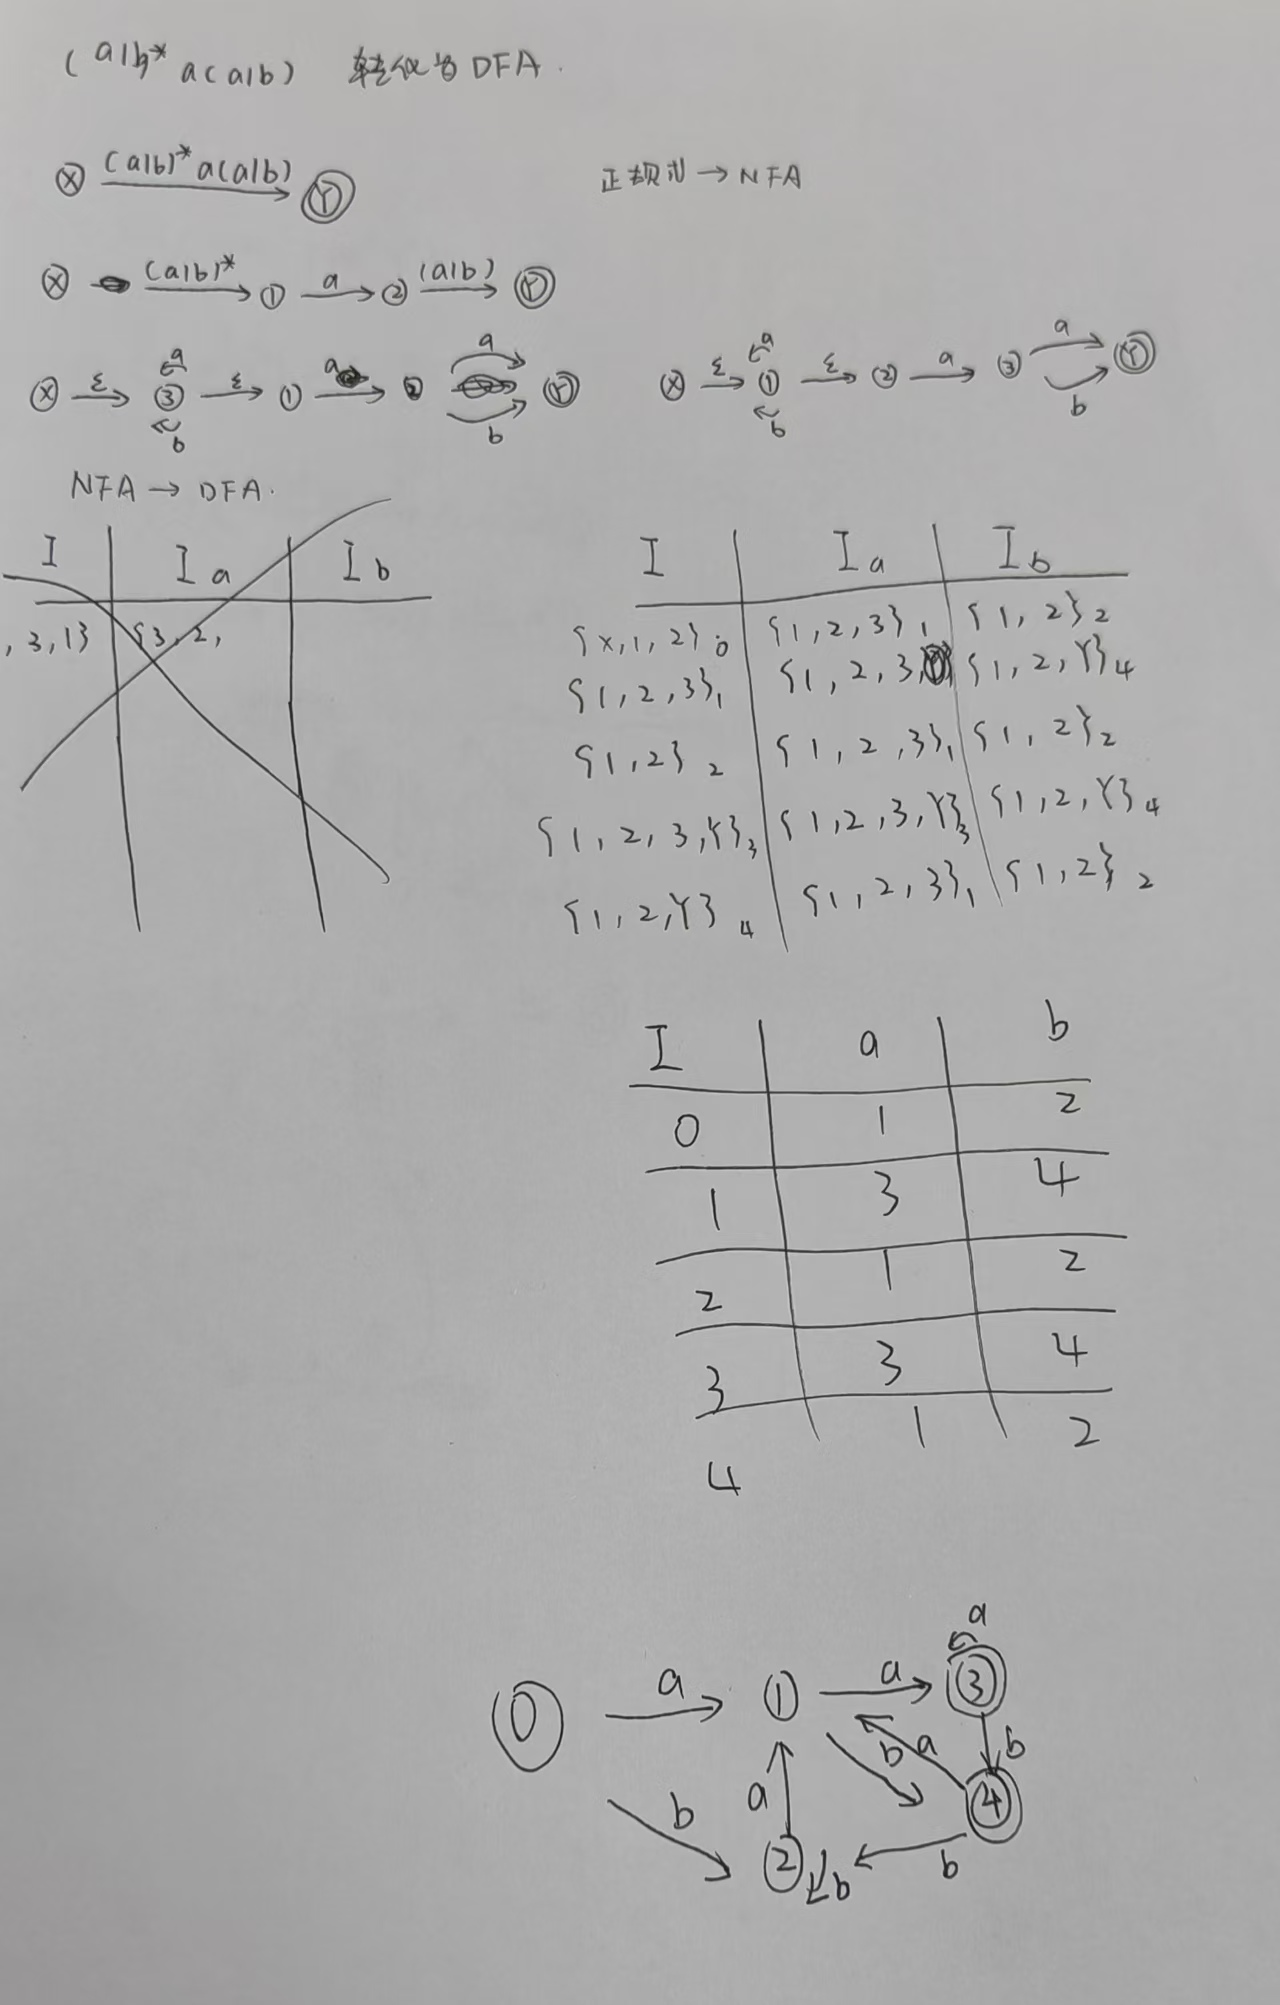 (a|b)* a(a|b) 转化为DFA.
X (a|b)*a(a|b) Y
正规式→NFA
X (a|b)* 1 a 2 (a|b) Y
X ε 3 a b ε 1 a 2 a b Y
X ε 1 a b ε 2 a 3 a b Y
NFA → DFA.
I Ia Ib
, 3, 1} {3, 2,
I Ia Ib
{x, 1, 2}0 {1, 2, 3}1 {1, 2}2
{1, 2, 3}1 {1, 2, 3, {1, 2, Y}4
{1, 2}2 {1, 2, 3}1 {1, 2}2
{1, 2, 3, Y}3 {1, 2, 3, Y}3 {1, 2, Y}4
{1, 2, Y}4 {1, 2, 3}1 {1, 2}2
I a b
0 1 2
1 3 4
2 1 2
3 3 4
4 1 2
a
0 a 1 a 3
b a b
b a 4
2 b b